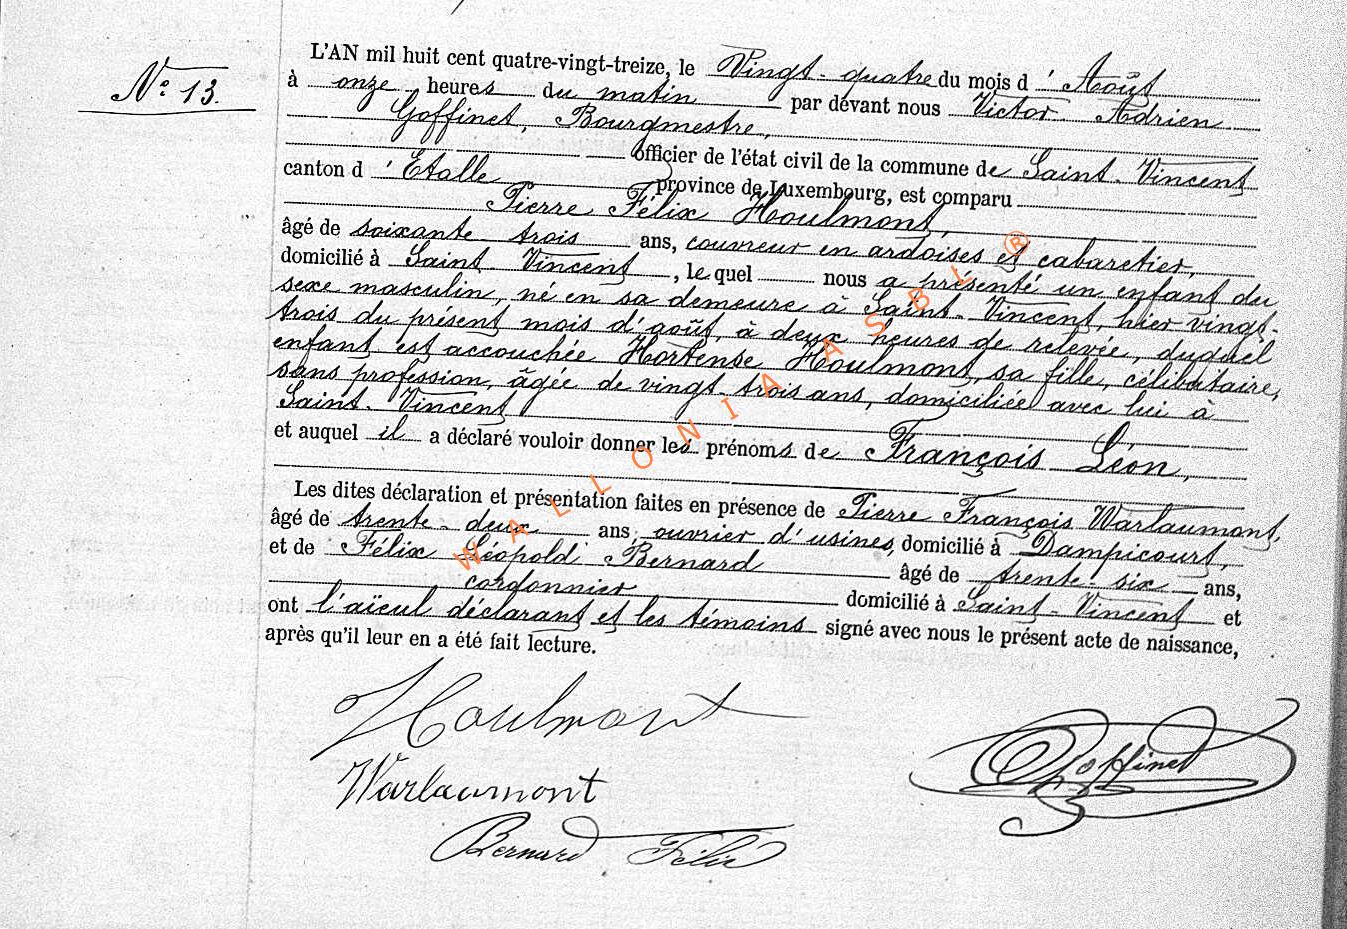 N° 13.
L'AN mil huit cent quatre-vingt-treize, le Vingt-quatre du mois d'Août
à onze heures du matin par devant nous Victor Adrien
Goffinet, Bourgmestre,
officier de l'état civil de la commune de Saint-Vincent
canton d'Etalle province de Luxembourg, est comparu
Pierre Félix Houlmont,
âgé de soixante trois ans, couvreur en ardoises et cabaretier,
domicilié à Saint-Vincent, le quel nous a présenté un enfant du
sexe masculin, né en sa demeure à Saint-Vincent, hier vingt-
trois du présent mois d'août, à deux heures de relevée, duquel
enfant est accouchée Hortense Houlmont, sa fille, célibataire,
sans profession, âgée de vingt-trois ans, domiciliée avec lui à
Saint-Vincent
et auquel il a déclaré vouloir donner les prénoms de François Léon,
Les dites déclaration et présentation faites en présence de Pierre François Warlaumont,
âgé de trente-deux ans, ouvrier d'usines, domicilié à Dampicourt,
et de Félix Léopold Bernard âgé de trente-six ans,
cordonnier domicilié à Saint-Vincent et
ont l'aïeul déclarant et les témoins signé avec nous le présent acte de naissance,
après qu'il leur en a été fait lecture.
Houlmont
Warlaumont
Goffinet
Bernard Félix
WALLONIA ASBL ®